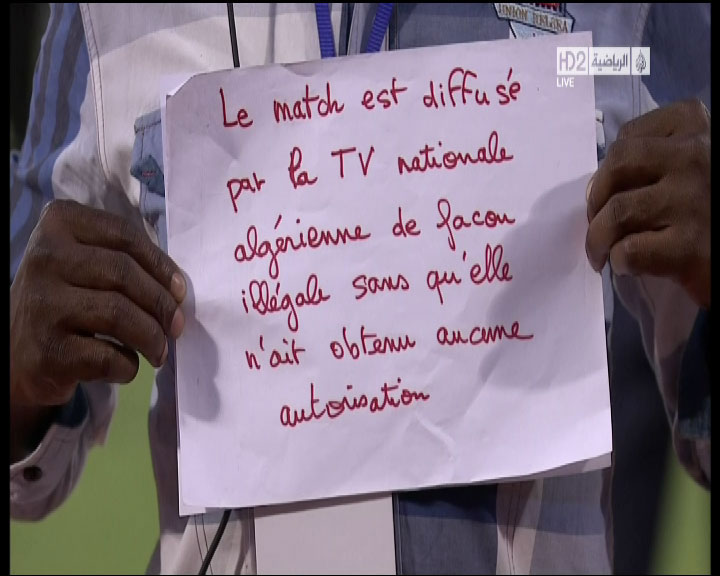 UNION BELGRA
HD2 الرياضية
LIVE
Le match est diffusé
par la TV nationale
algérienne de facon
illégale sans qu'elle
n'ait obtenu aucune
autorisation